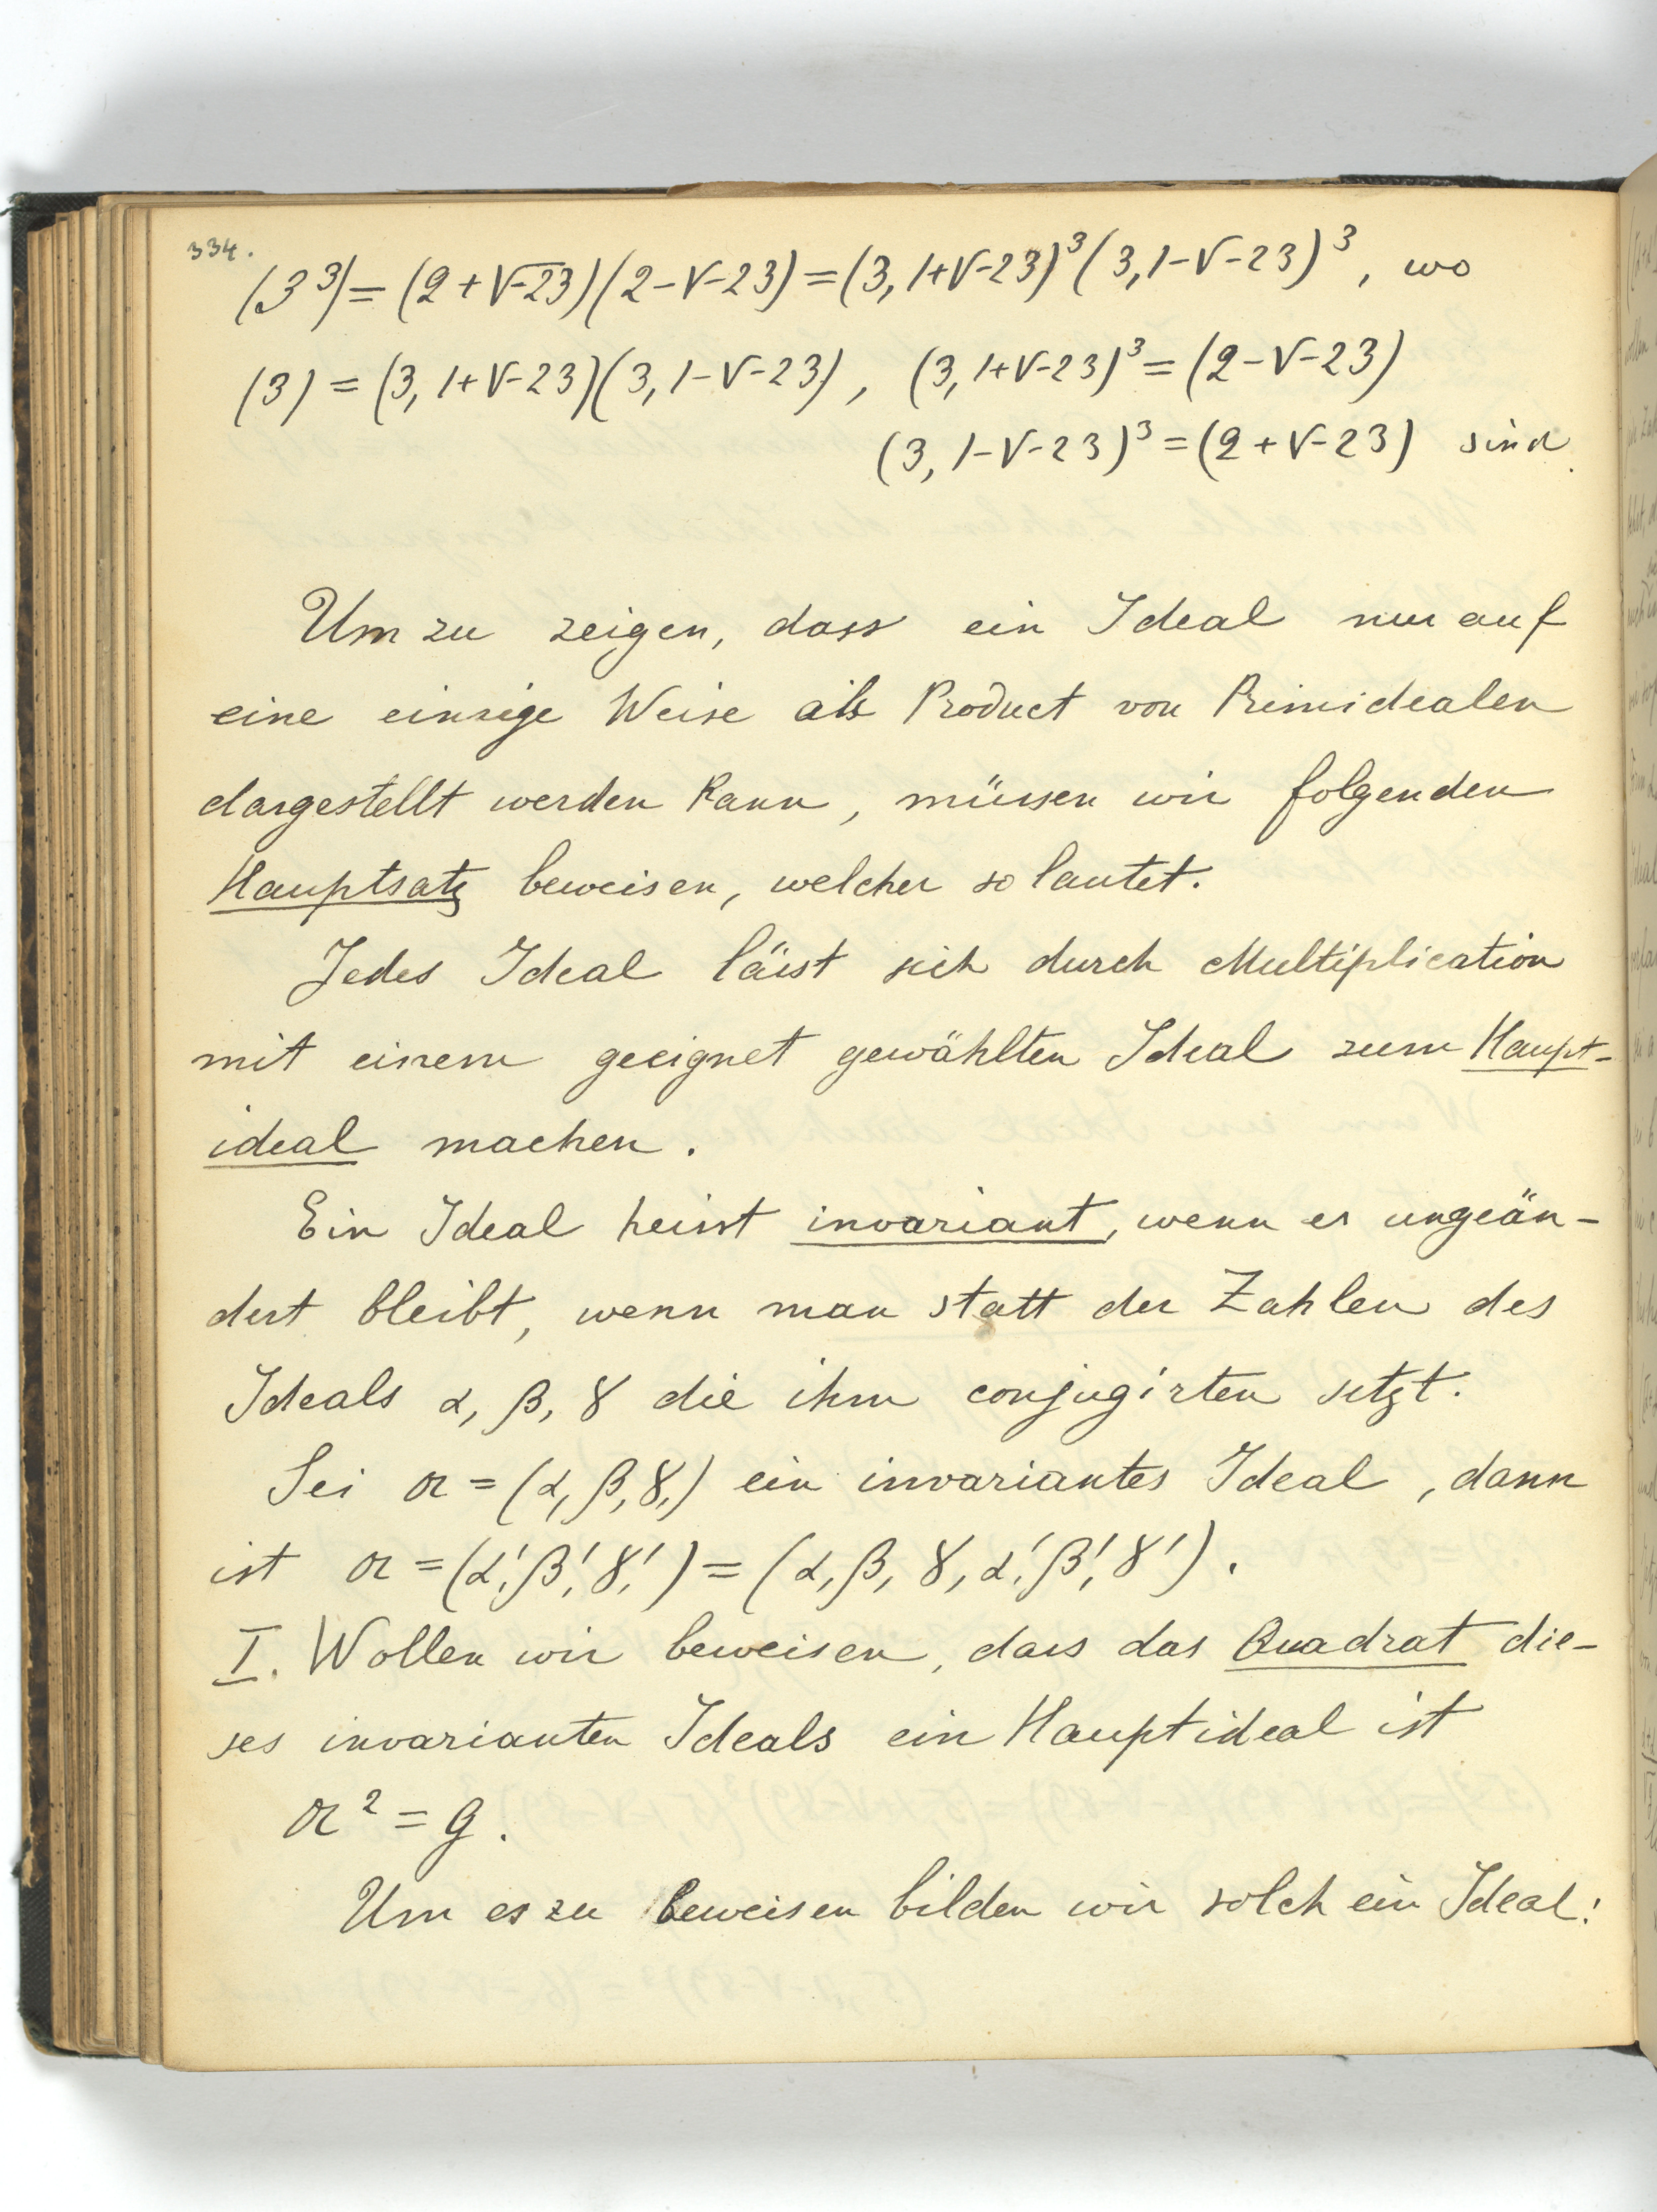 334.
(3³) = (2 + √-23)(2 - √-23) = (3, 1+√-23)³ (3, 1-√-23)³, wo
(3) = (3, 1+√-23)(3, 1-√-23), (3, 1+√-23)³ = (2-√-23)
(3, 1-√-23)³ = (2+√-23) sind.
Um zu zeigen, dass ein Ideal nur auf
eine einzige Weise als Product von Primidealen
dargestellt werden kann, müssen wir folgenden
Hauptsatz beweisen, welcher so lautet.
Jedes Ideal lässt sich durch Multiplication
mit einem geeignet gewählten Ideal zum Haupt-
ideal machen.
Ein Ideal heisst invariant, wenn es ungeän-
dert bleibt, wenn man statt der Zahlen des
Ideals α, β, γ die ihm conjugirten setzt.
Sei 𝔞 = (α, β, γ,) ein invariantes Ideal, dann
ist 𝔞 = (α', β', γ',) = (α, β, γ, α', β', γ').
I. Wollen wir beweisen, dass das Quadrat die-
ses invarianten Ideals ein Hauptideal ist
𝔞² = g.
Um es zu beweisen bilden wir solch ein Ideal: